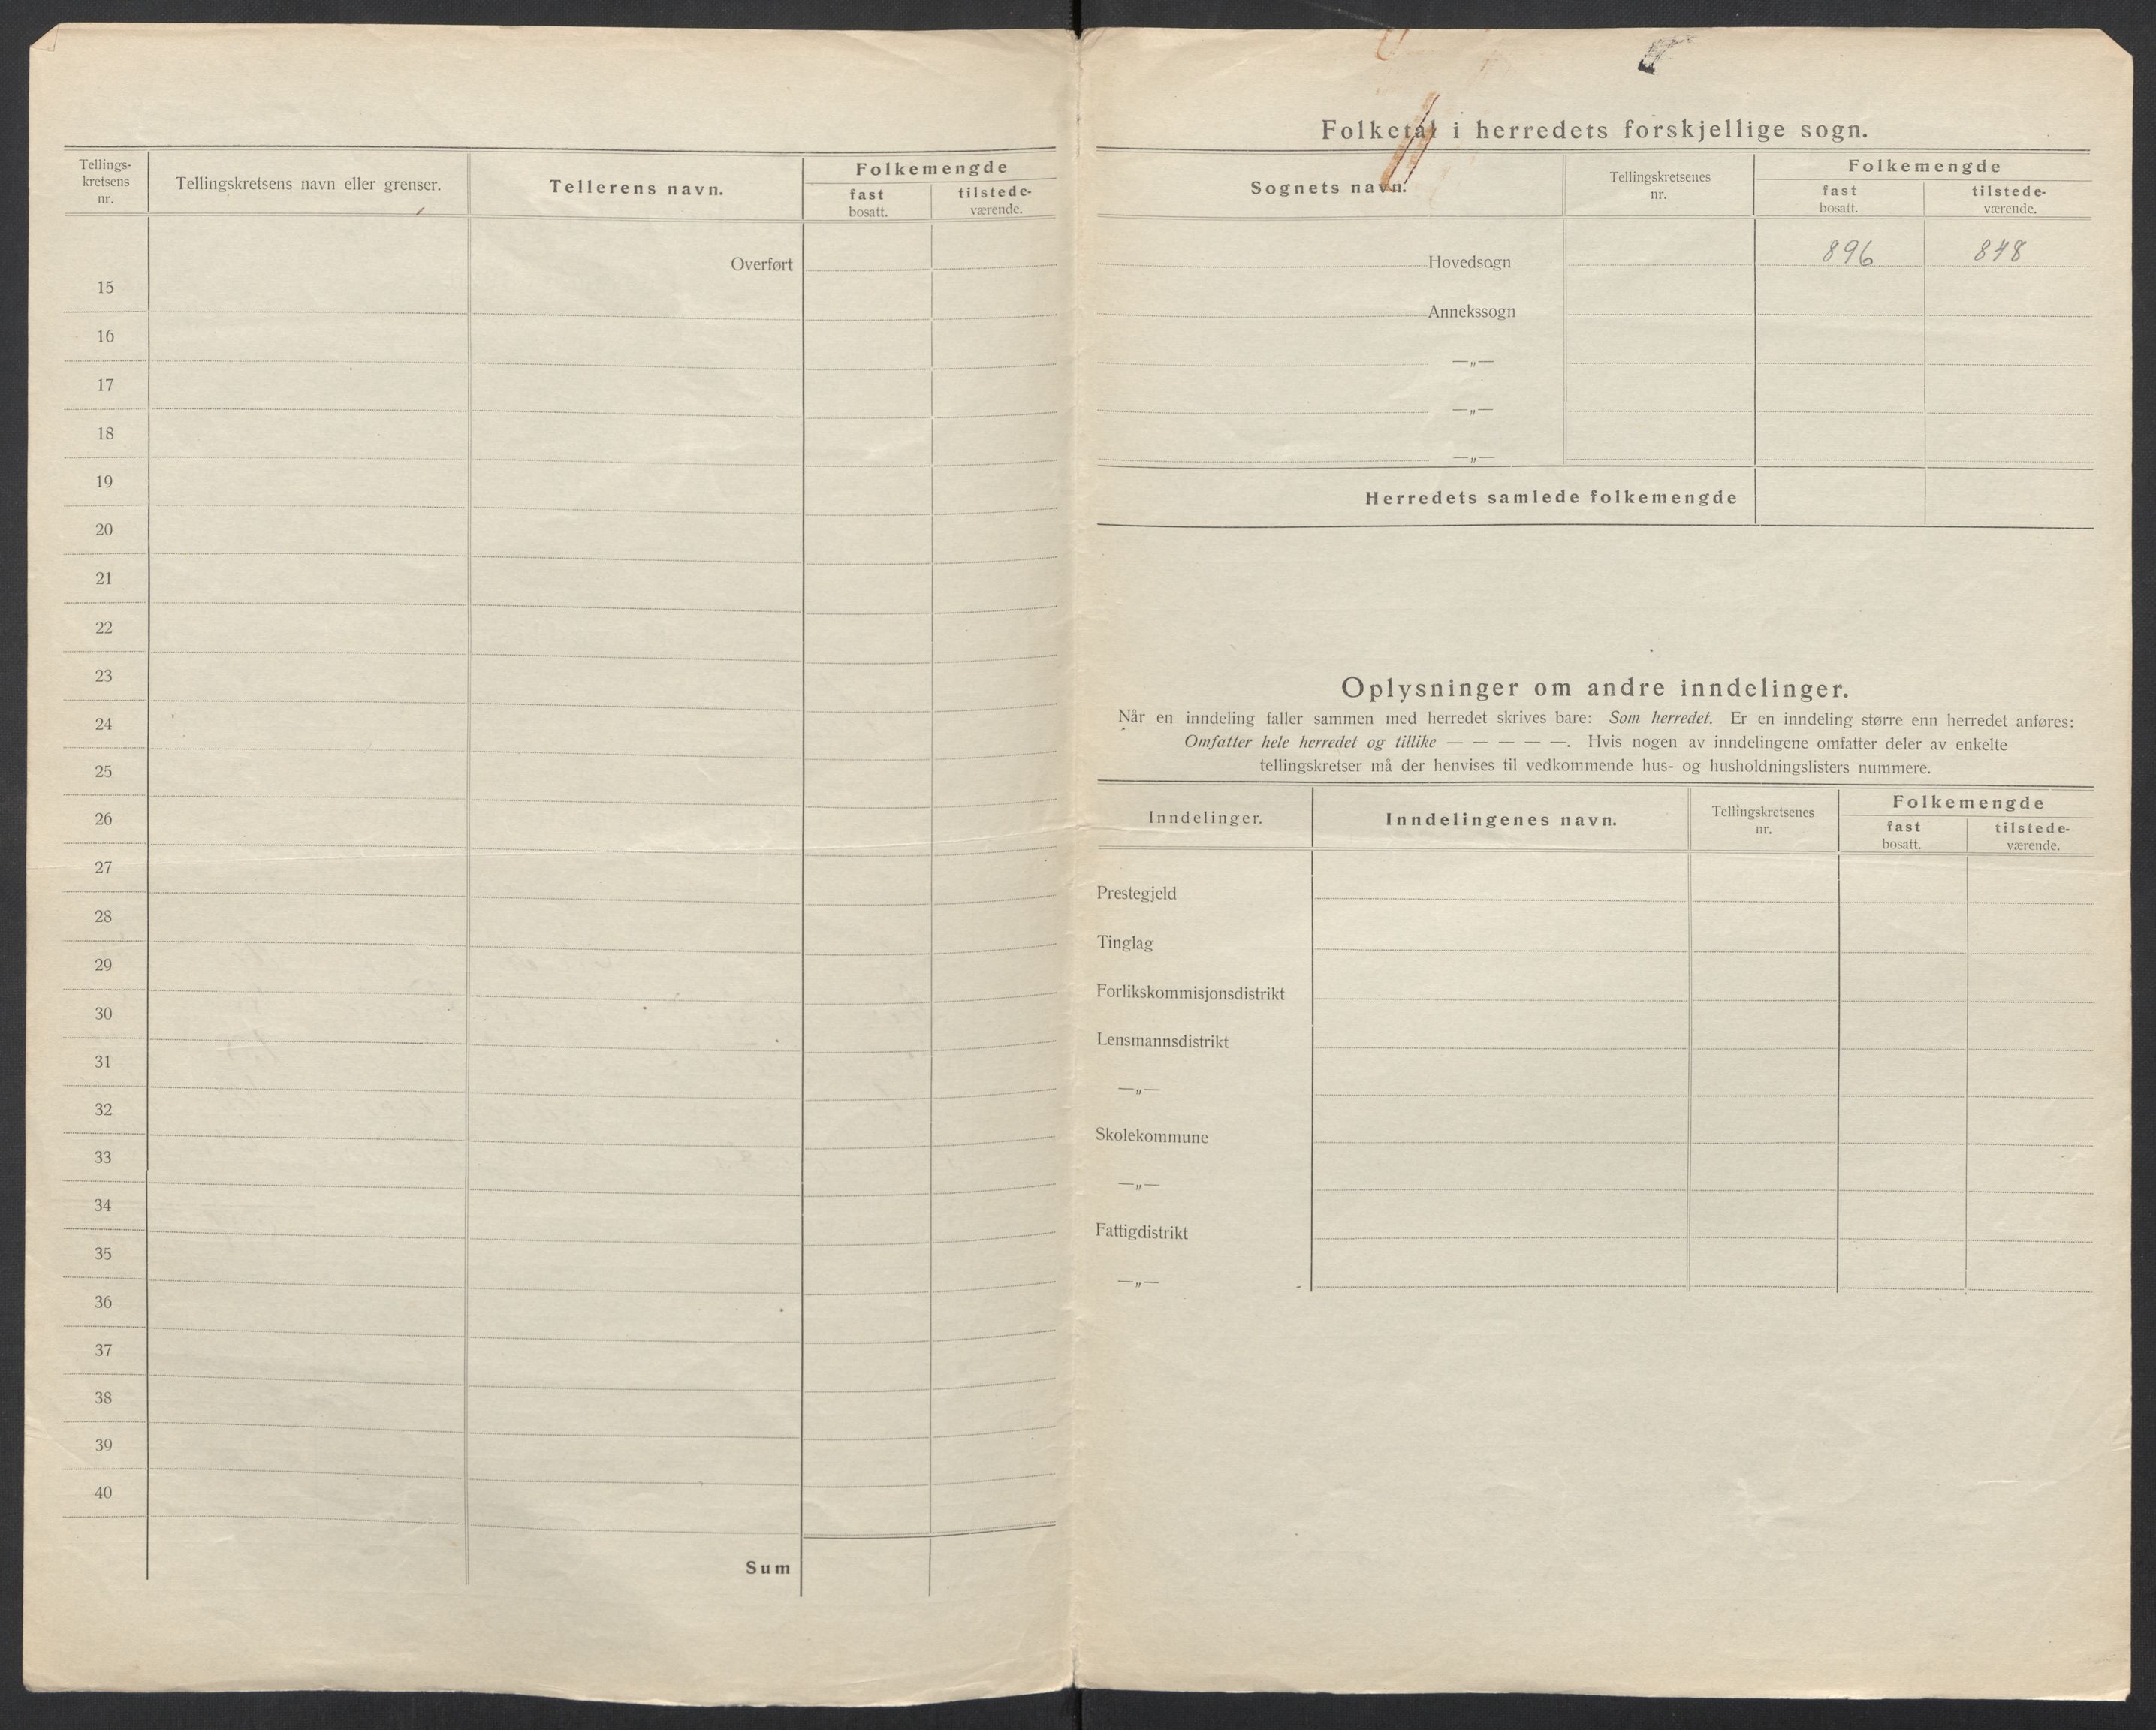 Tellings-
kretsens
nr.
Tellingskretsens navn eller grenser.
Tellerens navn.
Folkemengde
fast
bosatt.
tilstede-
værende.
Overført
15
16
17
18
19
20
21
22
23
24
25
26
27
28
29
30
31
32
33
34
35
36
37
38
39
40
Sum
Folketal i herredets forskjellige sogn.
Sognets navn.
Tellingskretsenes
nr.
Folkemengde
fast
bosatt.
tilstede-
værende.
Hovedsogn 896 848
Annekssogn
—„—
—„—
—„—
Herredets samlede folkemengde
Oplysninger om andre inndelinger.
Når en inndeling faller sammen med herredet skrives bare: Som herredet. Er en inndeling større enn herredet anføres:
Omfatter hele herredet og tillike — — — — —. Hvis nogen av inndelingene omfatter deler av enkelte
tellingskretser må der henvises til vedkommende hus- og husholdningslisters nummere.
Inndelinger.
Inndelingenes navn.
Tellingskretsenes
nr.
Folkemengde
fast
bosatt.
tilstede-
værende.
Prestegjeld
Tinglag
Forlikskommisjonsdistrikt
Lensmannsdistrikt
—„—
Skolekommune
—„—
Fattigdistrikt
—„—